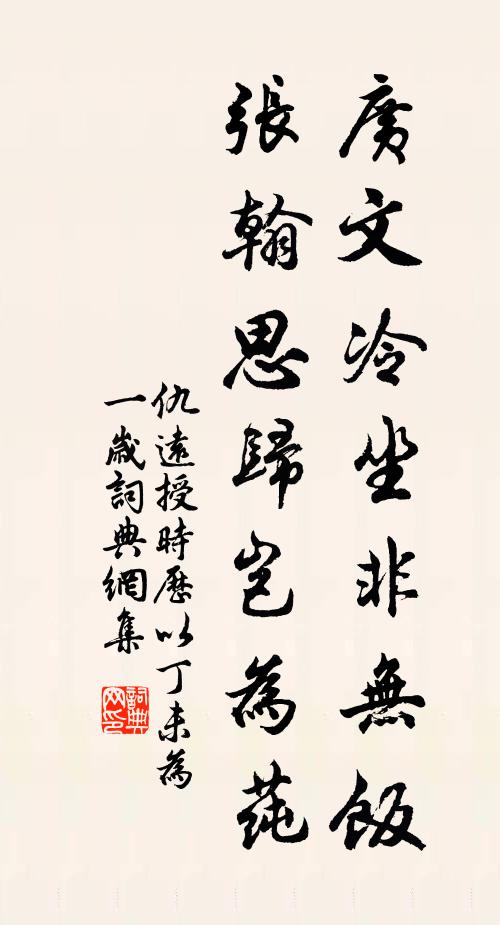 廣文冷坐非無飯
張翰思歸豈為蒓
仇遠授時歷以丁未為
一歲詞典網集
詞典网印